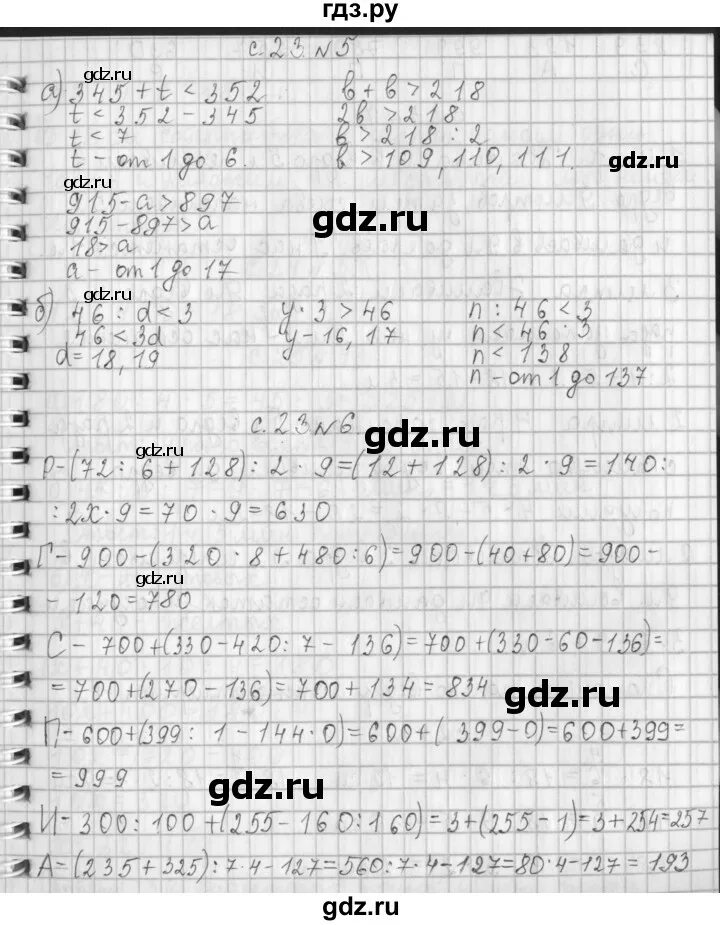 гдз.ру
с. 23 N 5.
а) 345 + t < 352    b + b > 218
t < 352 - 345    2b > 218
t < 7    b > 218 : 2
t - от 1 до 6.    b > 109, 110, 111.
915 - a > 897
915 - 897 > a
18 > a
a - от 1 до 17
б) 46 : d < 3    y · 3 > 46    n : 46 < 3
46 < 3d    y - 16, 17    n < 46 · 3
d = 18, 19    n < 138
n - от 1 до 137
с. 23 N 6.
Р - (72 : 6 + 128) : 2 · 9 = (12 + 128) : 2 · 9 = 140 :
: 2x · 9 = 70 · 9 = 630
Г - 900 - (320 · 8 + 480 : 6) = 900 - (40 + 80) = 900 -
- 120 = 780
С - 700 + (330 - 420 : 7 - 136) = 700 + (330 - 60 - 136) =
= 700 + (270 - 136) = 700 + 134 = 834
П - 600 + (399 : 1 - 144 · 0) = 600 + ( 399 - 0) = 600 + 399 =
= 999
И - 300 : 100 + (255 - 160 : 160) = 3 + (255 - 1) = 3 + 254 = 257
А = (235 + 325) : 7 · 4 - 127 = 560 : 7 · 4 - 127 = 80 · 4 - 127 = 193
gdz.ru
gdz.ru
gdz.ru
gdz.ru
gdz.ru
gdz.ru
gdz.ru
gdz.ru
gdz.ru
gdz.ru
gdz.ru
gdz.ru